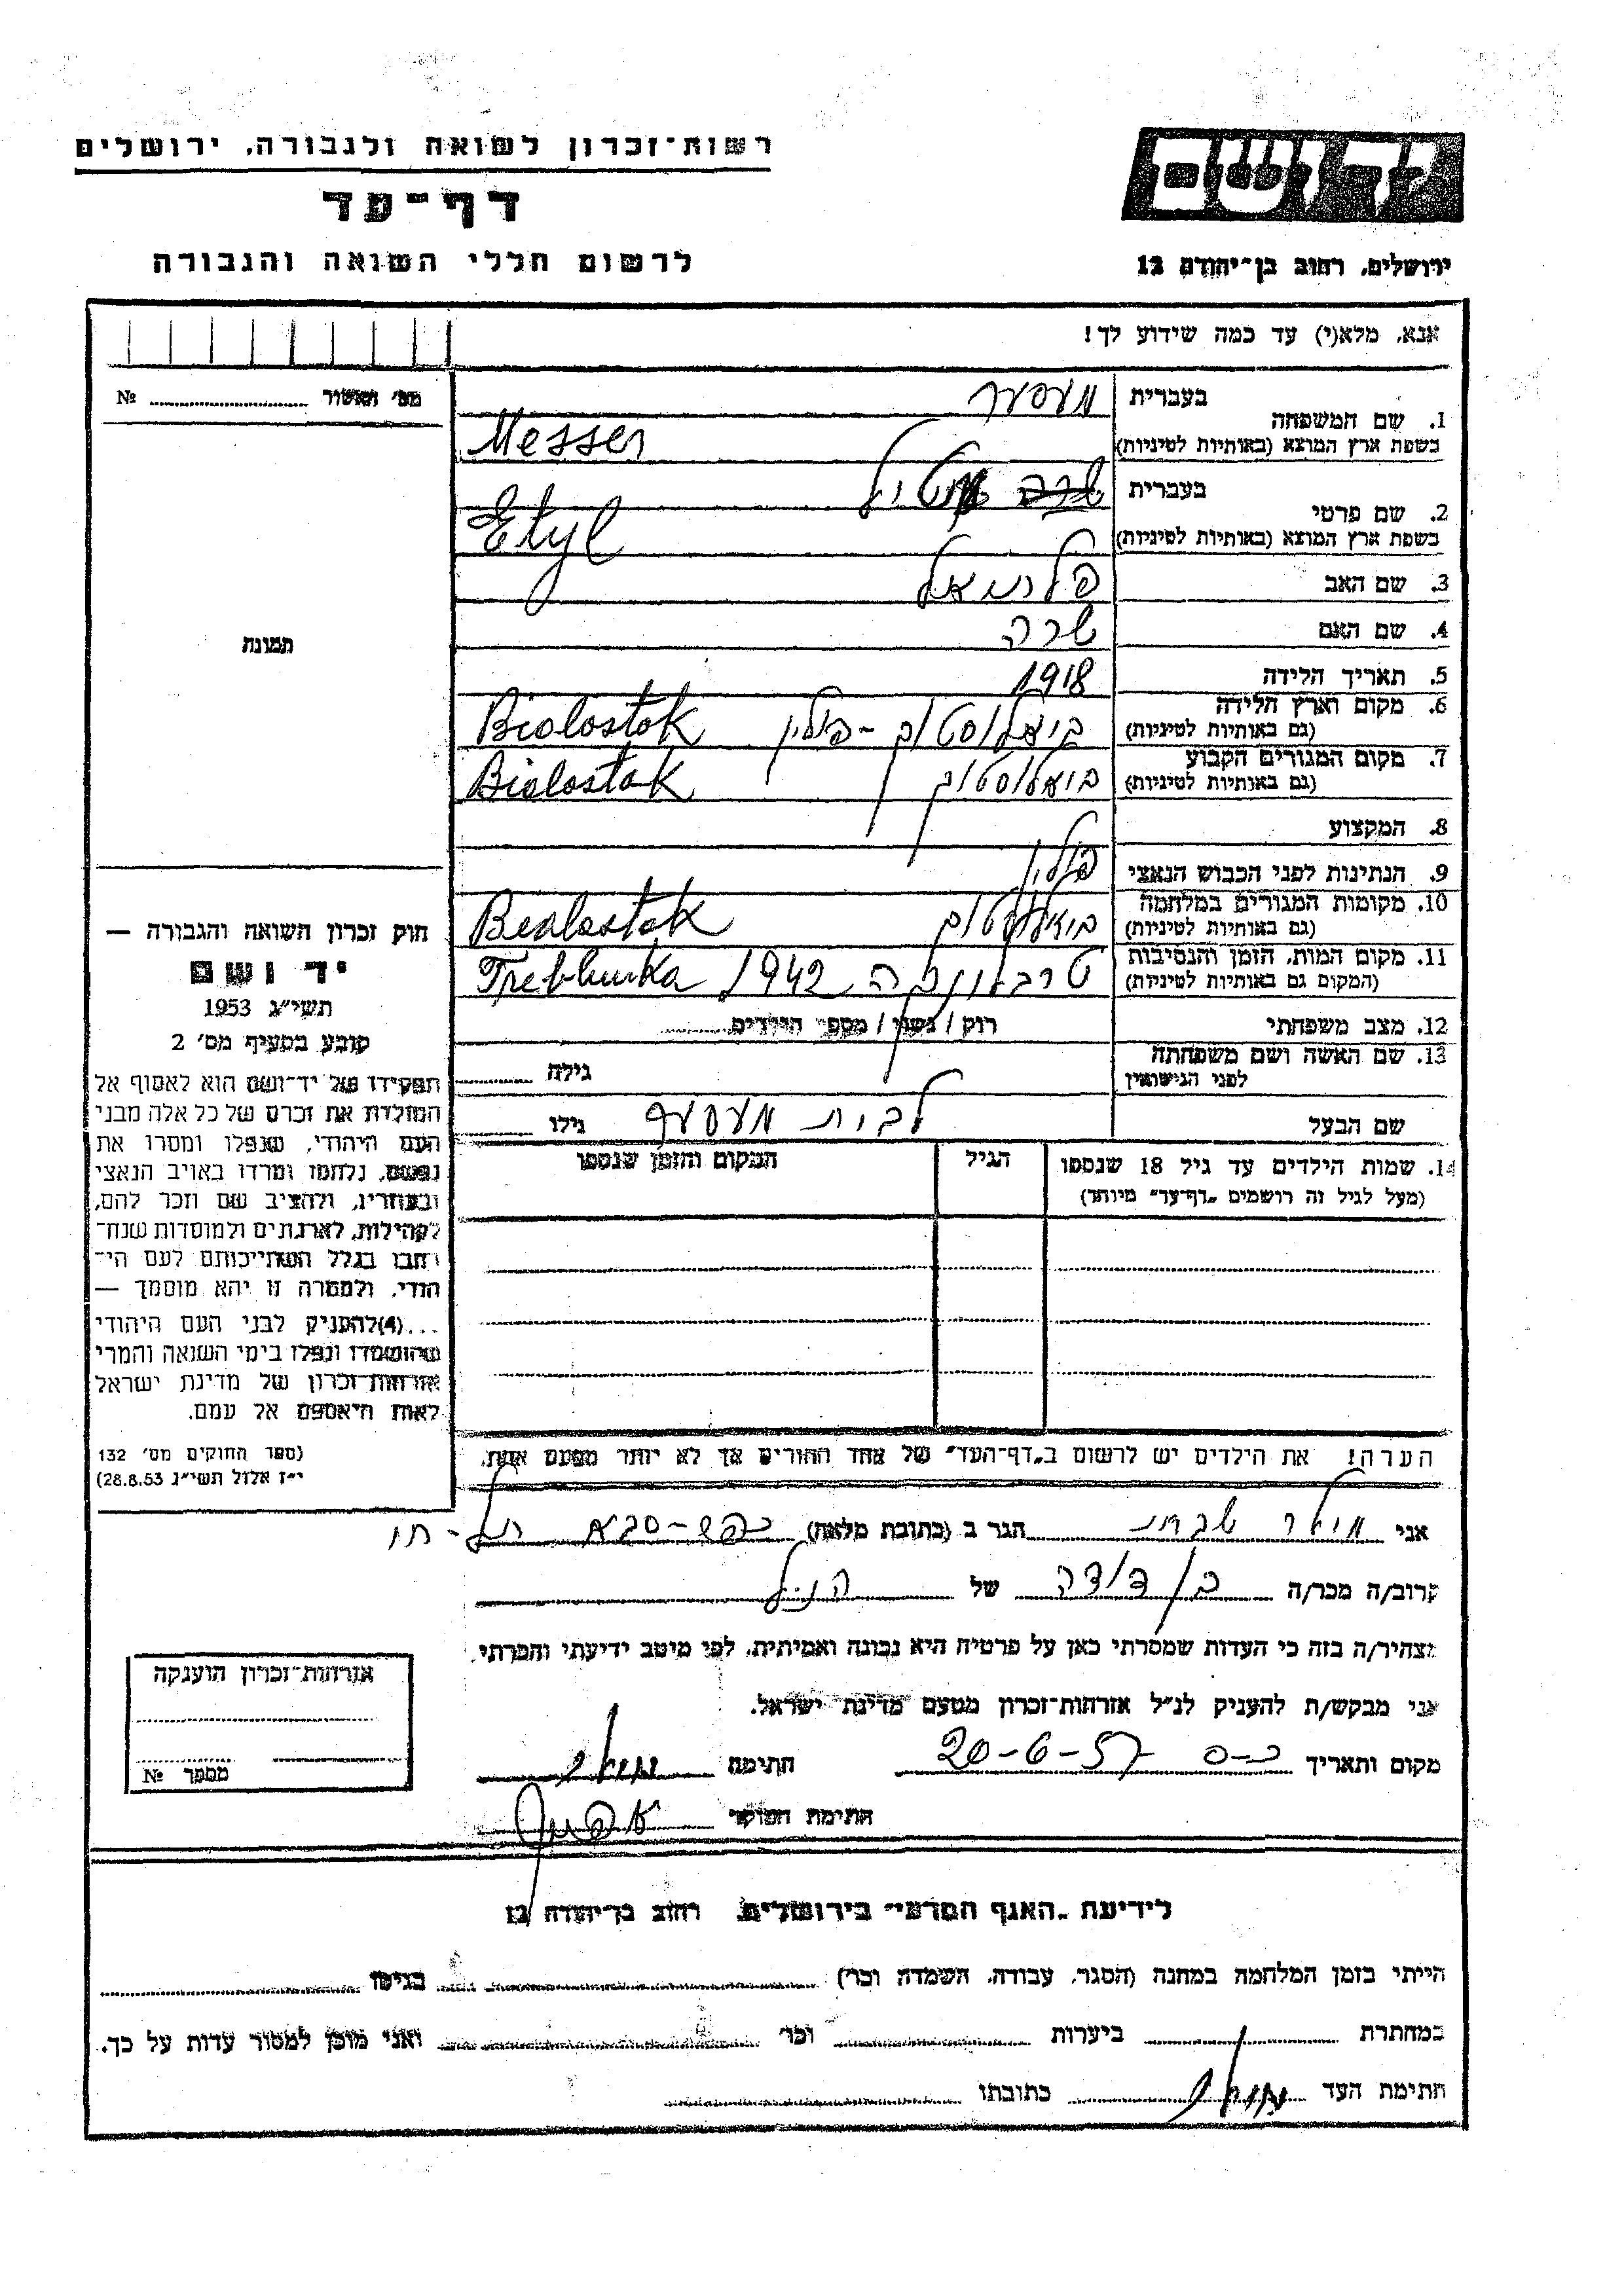 רשות־זכרון לשואה ולגבורה, ירושלים
דף־עד
לרשום חללי השואה והגבורה
יד ושם
ירושלים, רחוב בן־יהודה 12
אנא, מלא(י) עד כמה שידוע לך!
מס' האשור № 
בעברית מעסער
1. שם המשפחה
בשפת ארץ המוצא (באותיות לטיניות) Messer
בעברית שרה אטיל
2. שם פרטי
בשפת ארץ המוצא (באותיות לטיניות) Etyl
3. שם האב
4. שם האם שרה
5. תאריך הלידה 1918
6. מקום וארץ הלידה ביאלוסטוק - פולין Bialostok
(גם באותיות לטיניות)
7. מקום המגורים הקבוע ביאלוסטוק Bialostok
(גם באותיות לטיניות)
8. המקצוע
9. הנתינות לפני הכבוש הנאצי פולין
10. מקומות המגורים במלחמה ביאלוסטוק Bialostok
(גם באותיות לטיניות)
11. מקום המות, הזמן והנסיבות טרבלינקה 1942 Treblinka
(המקום גם באותיות לטיניות)
12. מצב משפחתי רוק / נשוי / מספר הילדים
13. שם האשה ושם משפחתה
לפני הנישואין גילה
שם הבעל לבית מעסער גילו
14. שמות הילדים עד גיל 18 שנספו הגיל המקום והזמן שנספו
(מעל לגיל זה רושמים „דף־עד" מיוחד)
תמונה
חוק זכרון השואה והגבורה —
יד ושם
תשי"ג 1953
קובע בסעיף מס' 2
תפקידו של יד־ושם הוא לאסוף אל
המולדת את זכרם של כל אלה מבני
העם היהודי, שנפלו ומסרו את
נפשם, נלחמו ומרדו באויב הנאצי
ובעוזריו, ולהציב שם וזכר להם,
לקהילות, לארגונים ולמוסדות שנח־
רבו בגלל השתייכותם לעם הי־
הודי, ולמטרה זו יהא מוסמך —
...(4) להעניק לבני העם היהודי
שהושמדו ונפלו בימי השואה והמרי
אזרחות־זכרון של מדינת ישראל
לאות היאספם אל עמם.
(ספר החוקים מס' 132
י"ז אלול תשי"ג 28.8.53)
הערה! את הילדים יש לרשום ב„דף־העד" של אחד ההורים אך לא יותר מפעם אחת.
אני הגר ב (כתובת מלאה) כפר-סבא
קרוב/ה מכר/ה בן דודה של הנ"ל
מצהיר/ה בזה כי העדות שמסרתי כאן על פרטיה היא נכונה ואמיתית, לפי מיטב ידיעתי והכרתי.
אני מבקש/ת להעניק לנ"ל אזרחות־זכרון מטעם מדינת ישראל.
מקום ותאריך כ-ס 20-6-57 חתימה
חתימת הפוקד
אזרחות־זכרון הוענקה
מספר №
לידיעת „האגף המדעי" בירושלים, רחוב בן־יהודה 12
הייתי בזמן המלחמה במחנה (הסגר, עבודה, השמדה וכו') בגיטו
במחתרת ביערות וכו' ואני מוכן למסור עדות על כך.
חתימת העד כתובתו